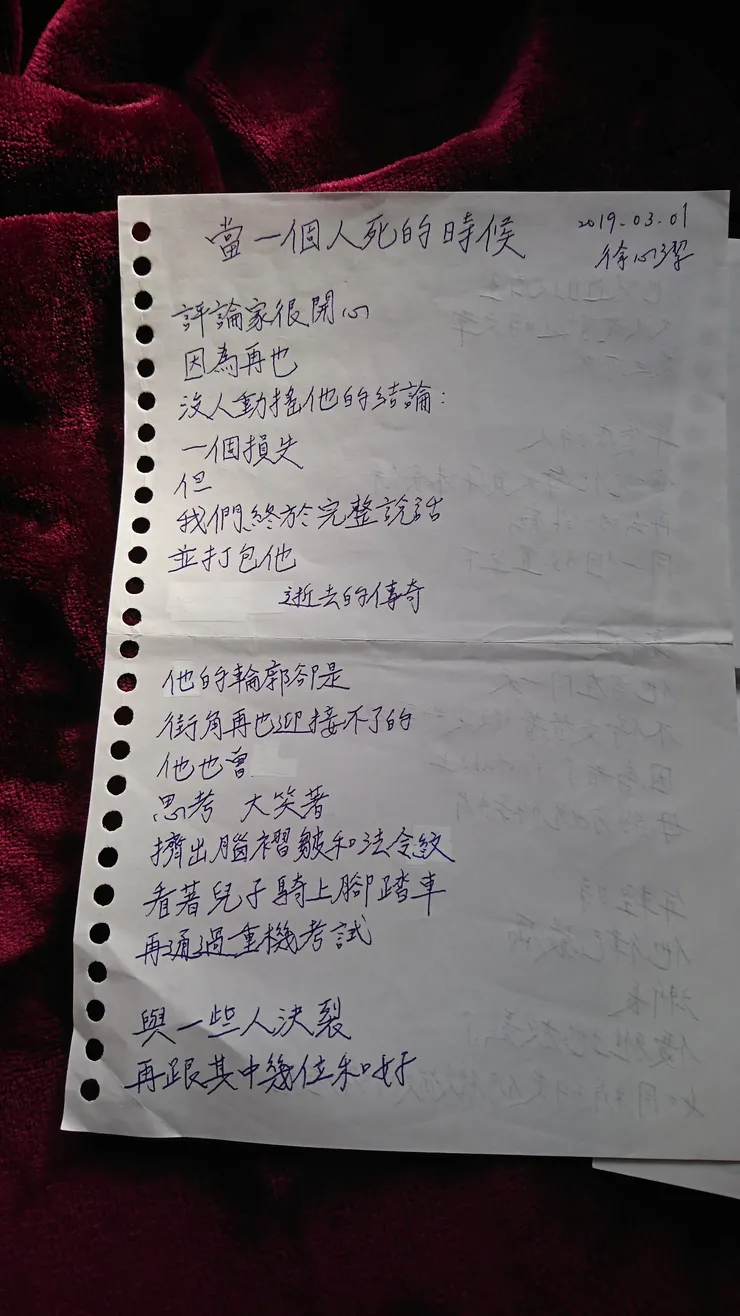 當一個人死的時候
2019.03.01
徐心潔
評論家很開心
因為再也
沒人動搖他的結論：
一個損失
但
我們終於完整說話
並打包他
逝去的傳奇
他的輪廓卻是
街角再也迎接不了的
他也會
思考 大笑著
擠出腦褶皺和法令紋
看著兒子騎上腳踏車
再通過重機考試
與一些人決裂
再跟其中幾位和好